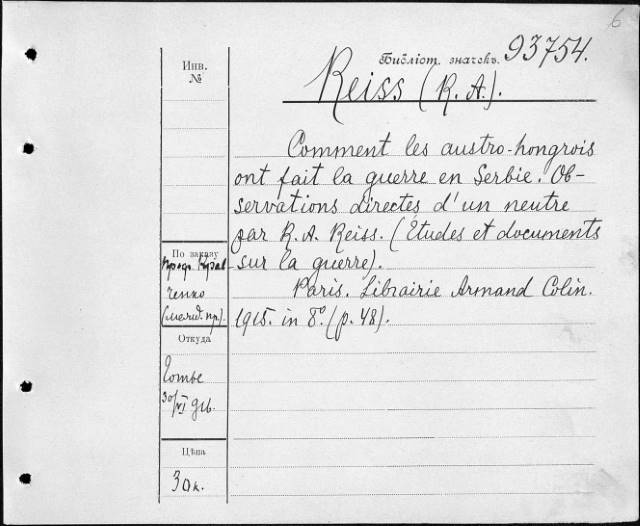 6
Библіот. значекъ. 93754.
Инв.
№
Reiss (R. A.).
Comment les austro-hongrois
ont fait la guerre en Serbie. Ob-
servations directes d'un neutre
par R. A. Reiss. (Études et documents
sur la guerre).
Paris. Librairie Armand Colin.
1915. in 8º. (p. 48).
По заказу
проф. Крав-
ченко
Откуда
30/VI
Цѣна
30к.